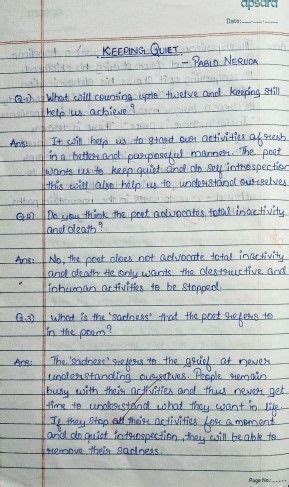 apsara
Date:
KEEPING QUIET
- PABLO NERUDA
Q-1) What will counting upto twelve and keeping still
help us achieve?
Ans: It will help us to start our activities afresh
in a better and purposeful manner. The poet
wants us to keep quiet and do self introspection
this will also help us to understand ourselves.
Q-2) Do you think the poet advocates total inactivity
and death?
Ans: No, the poet does not advocate total inactivity
and death He only wants the destructive and
inhuman activities to be stopped.
Q.3) What is the 'sadness' that the poet refers to
in the poem?
Ans: The 'sadness' refers to the grief at never
understanding ourselves. People remain
busy with their activities and thus never get
time to understand what they want in life.
If they stop all their activities for a moment
and do quiet introspection, they will be able to
remove their sadness.
Page No.: